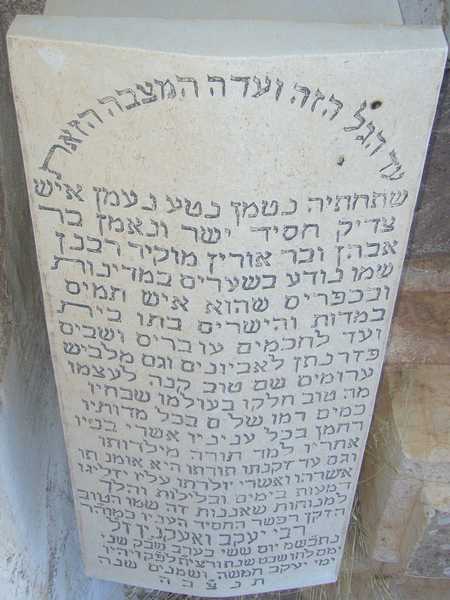 עד הגל הזה ועדה המצבה הזאת
שתחתיה נטמן נטע נעמן איש
צדיק חסיד ישר ונאמן בר
אבהן ובר אוריין מוקיר רבנן
שמו נודע בשערים במדינות
ובכפרים שהוא איש תמים
במדות והישרים בתו בית
ועד לחכמים עוברים ושבים
פזר נתן לאביונים וגם מלביש
ערומים שם טוב קנה לעצמו
מה טוב חלקו בעולמו שבחיו
כמים רמו שלים בכל מדותיו
רחמן בכל עניניו אשרי בניו
אחריו למד תורה מילדותו
וגם עד זקנתו תורתו היא אומנתו
אשרהו ואשרי יולדתו עליו יזליגו
דמעות בימים ובלילות והלך
למנוחות שאננות זה שמו הטוב
הזקן החסיד העניו
רבי יעקב ואעקנין זל
יום ששי בערב שבק שני
ימים לחו שבט שנת
ימי יעקב חמשה ושמנים שנה
ת נ צ ב ה